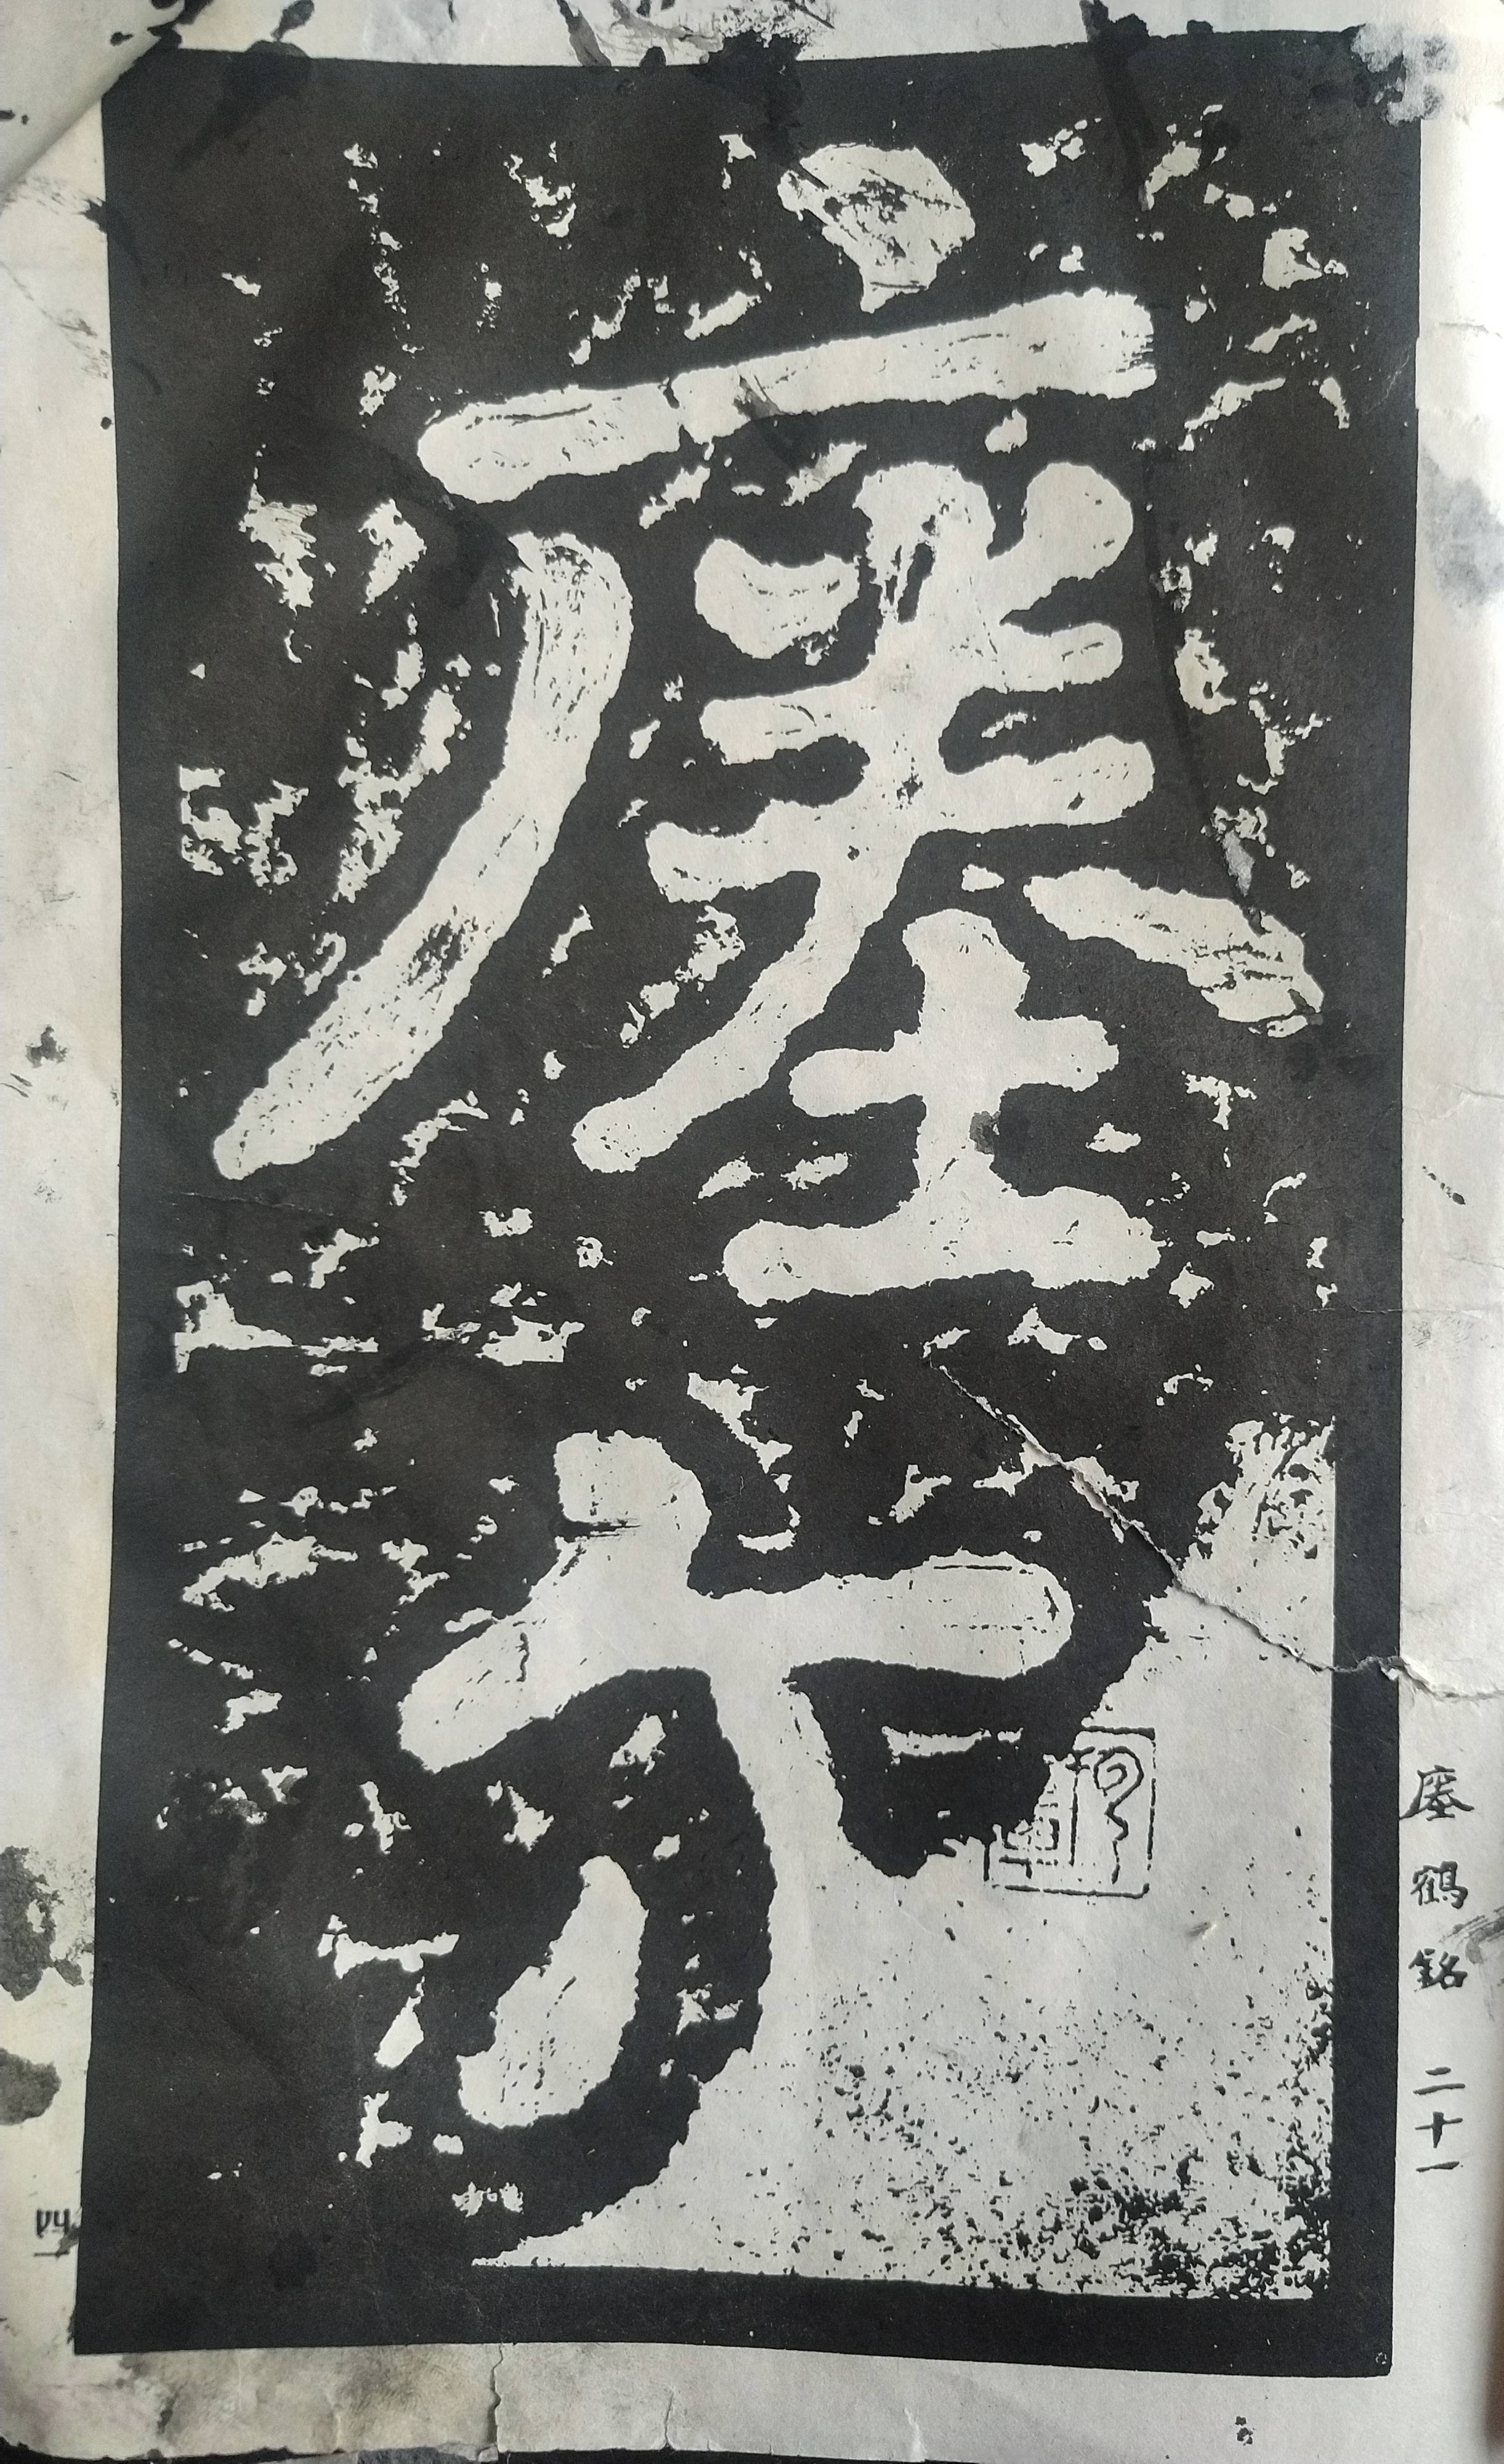 瘞尔
瘞鶴銘 二十一